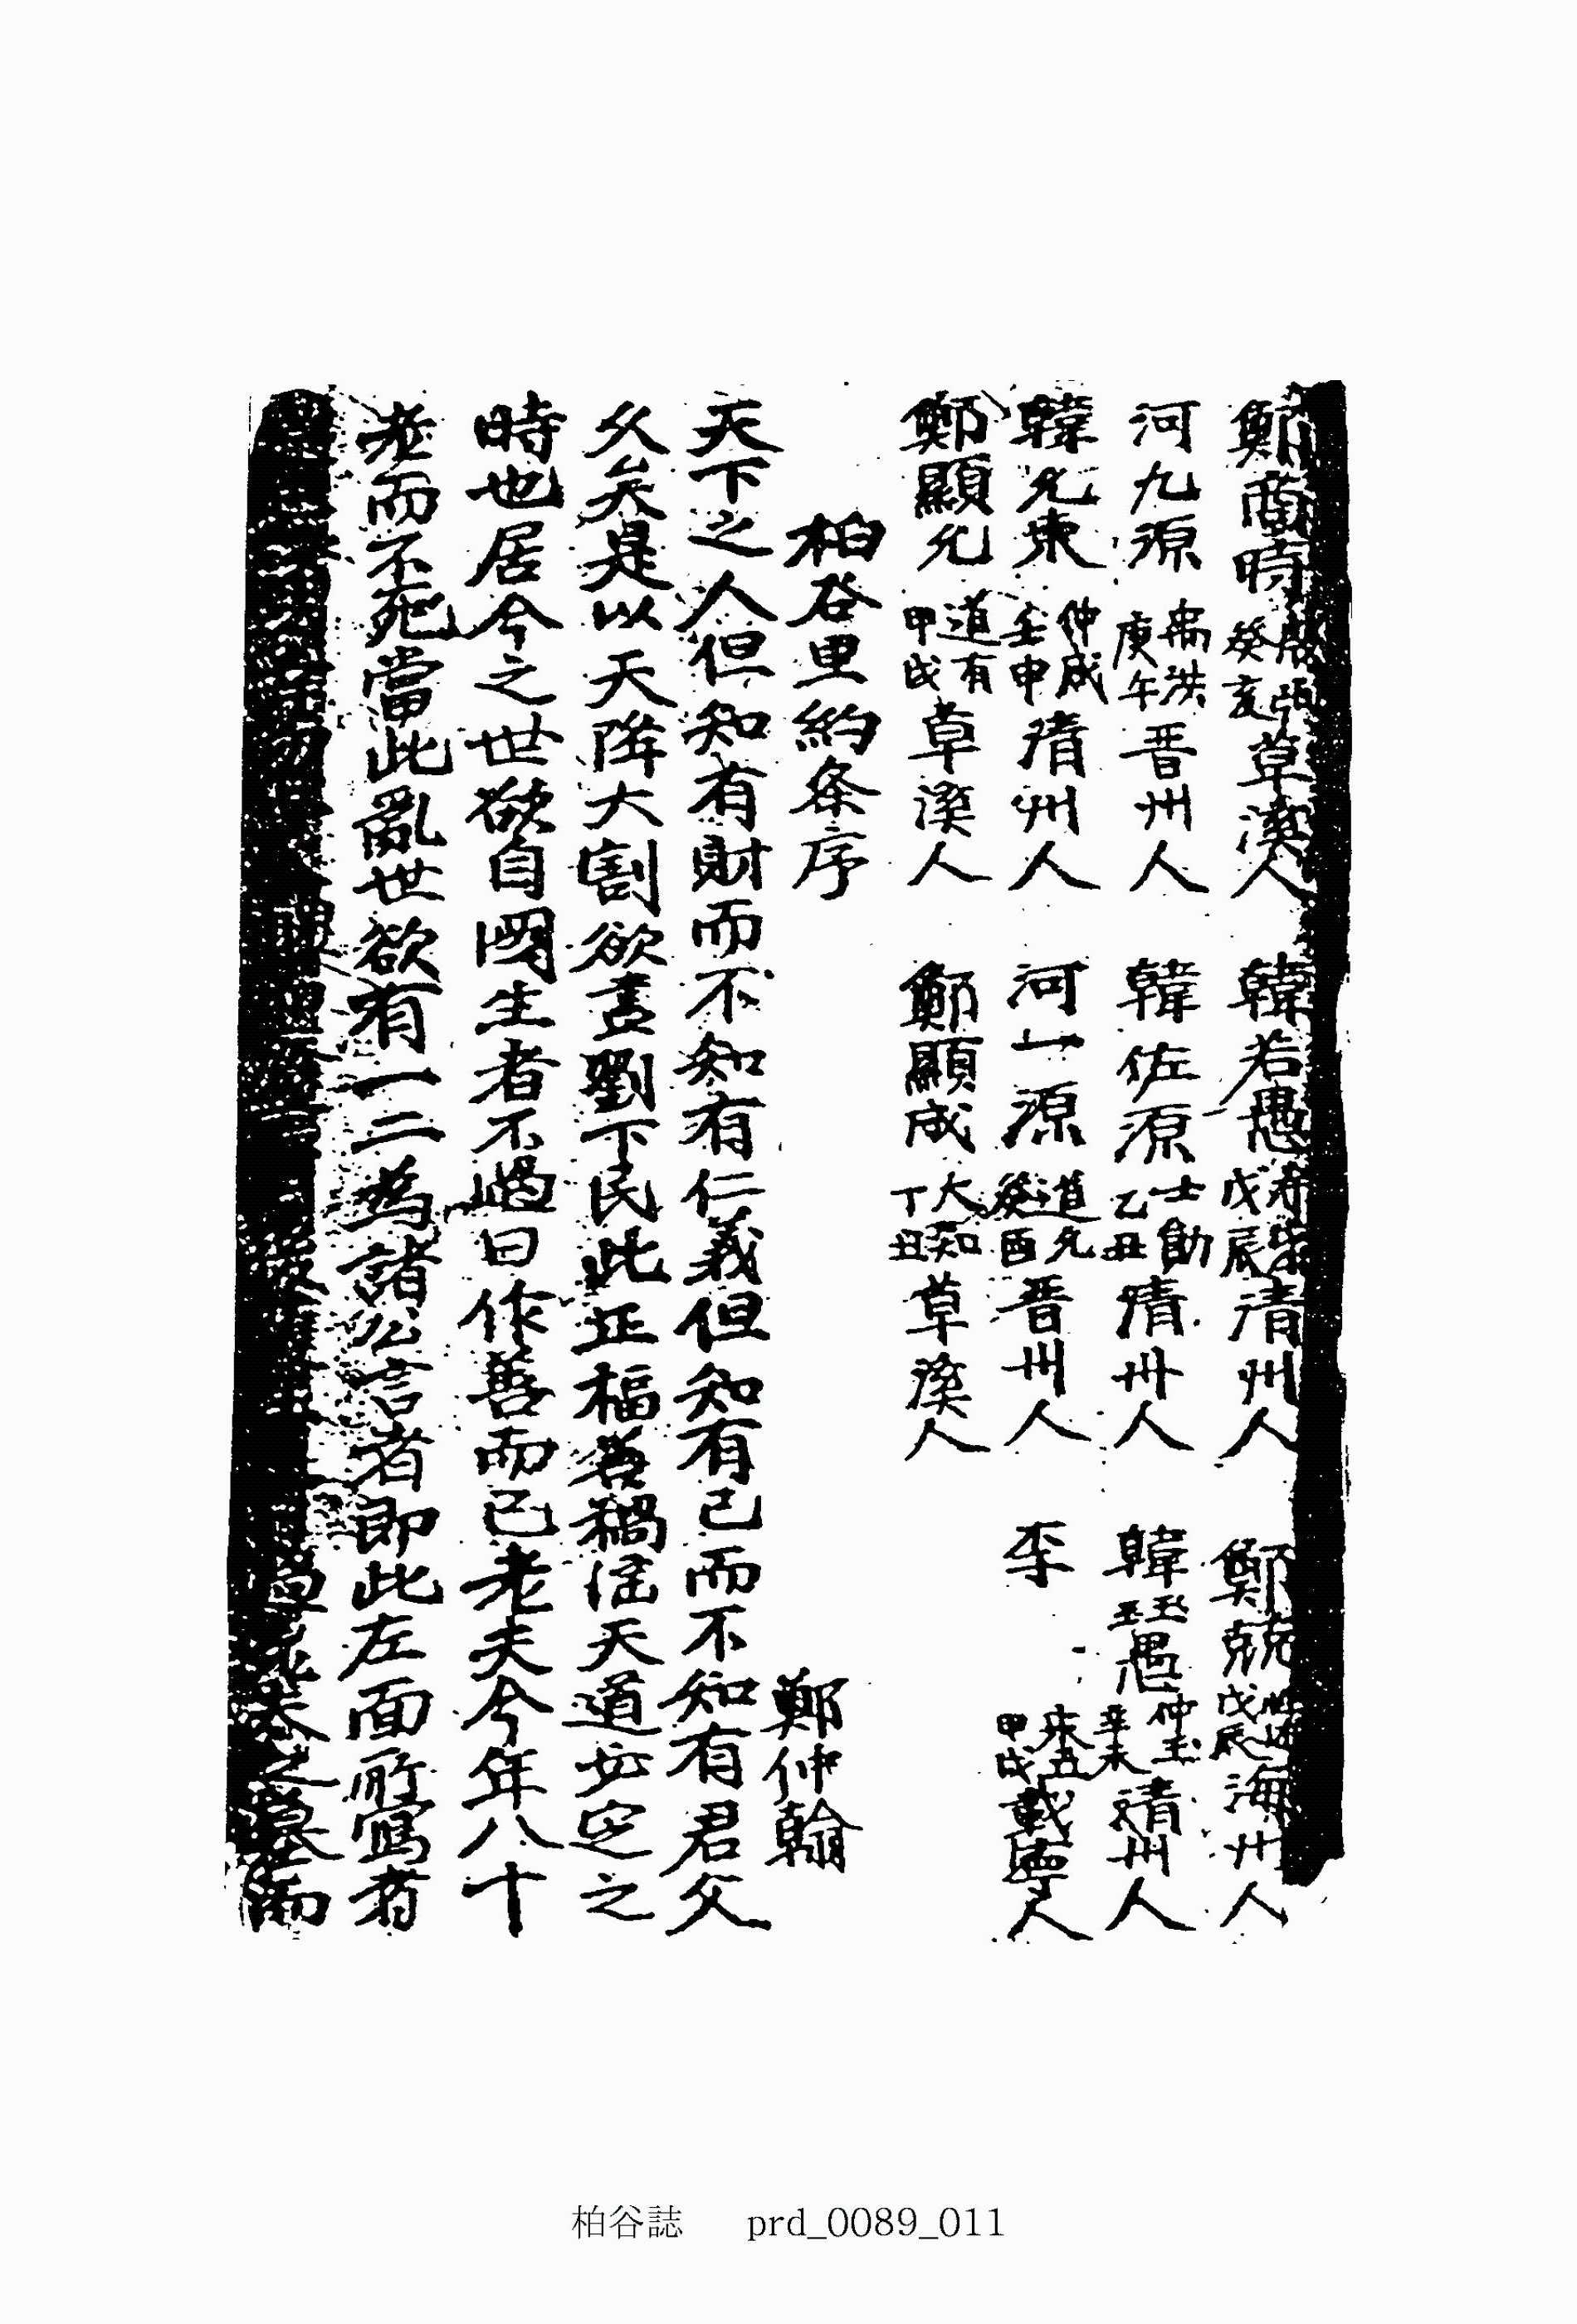 鄭商時 癸亥 草溪人 韓若愚 戊辰 清州人 鄭兢 戊辰 海州人
河九源 禹洪 庚午 晋州人 韓佐源 士勛 乙丑 清州人 韓愚 仲玉 辛未 清州人
韓允東 仲成 壬申 清州人 河一源 道允 癸酉 晋州人 李 甲戌 載寧人
鄭顯允 道有 甲戌 草溪人 鄭顯成 大和 丁丑 草溪人
柏谷里約条序
鄭仲翰
天下之人但知有財而不知有仁義但知有己而不知有君父
久矣是以天降大割欲盡劉下民此正福善禍淫天道必定之
時也居今之世欲自國生者不過曰作善而已老夫今年八十
老而不死當此亂世欲有一二為諸公言者即此左面所寫者
之墓而
柏谷誌 prd_0089_011